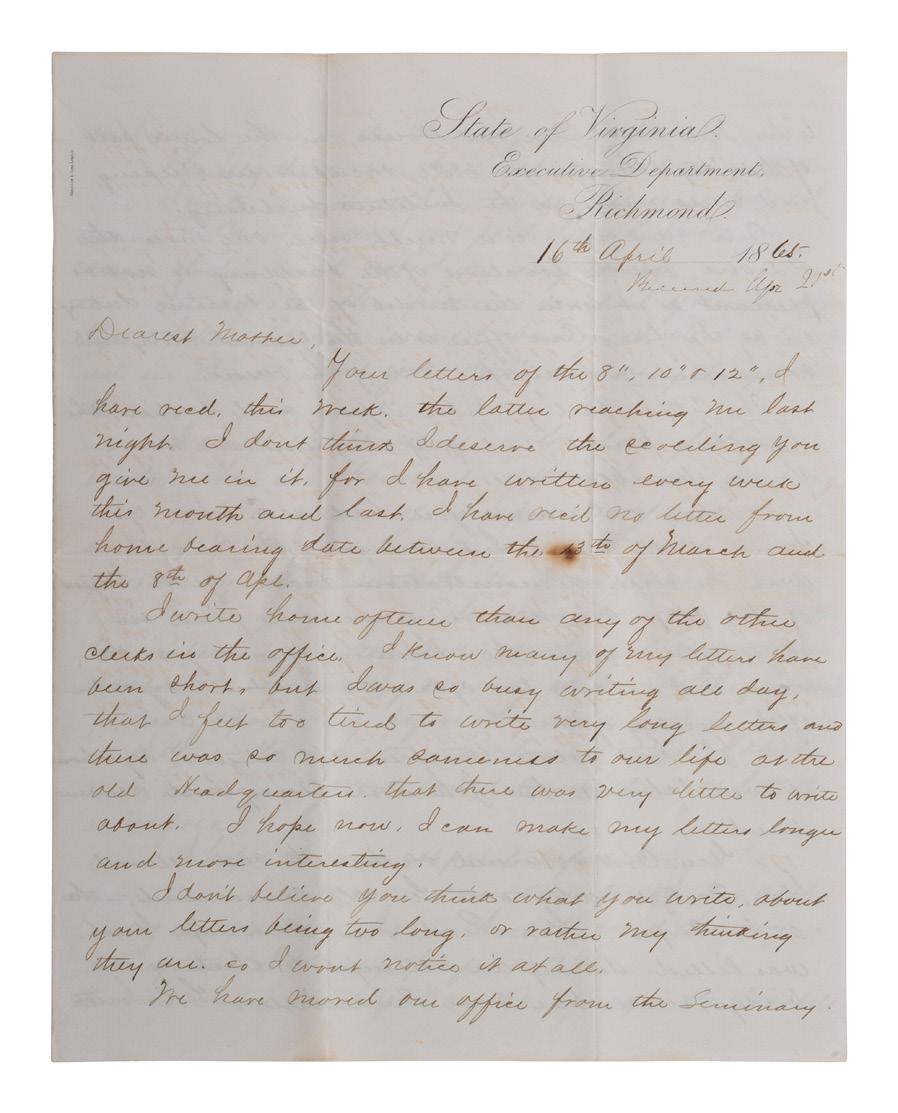 State of Virginia.
Executive Department.
Richmond.
16th April 1865.
Received Apr 21st
Dearest Mother,
Your letters of the 8", 10" & 12", I
have recd. this week. the latter reaching me last
night. I dont think I deserve the scolding you
give me in it, for I have written every week
this month and last. I have rec'd no letter from
home bearing date between the 13th of March and
the 8th of Apl.
I write home oftener than any of the other
clerks in the office. I know many of my letters have
been short, but I was so busy writing all day,
that I felt too tired to write very long letters and
there was so much sameness to our life at the
old Headquarters. that there was very little to write
about. I hope now, I can make my letters longer
and more interesting.
I don't believe you think what you write, about
your letters being too long, or rather my thinking
they are. so I wont notice it at all.
We have moved our office from the Seminary